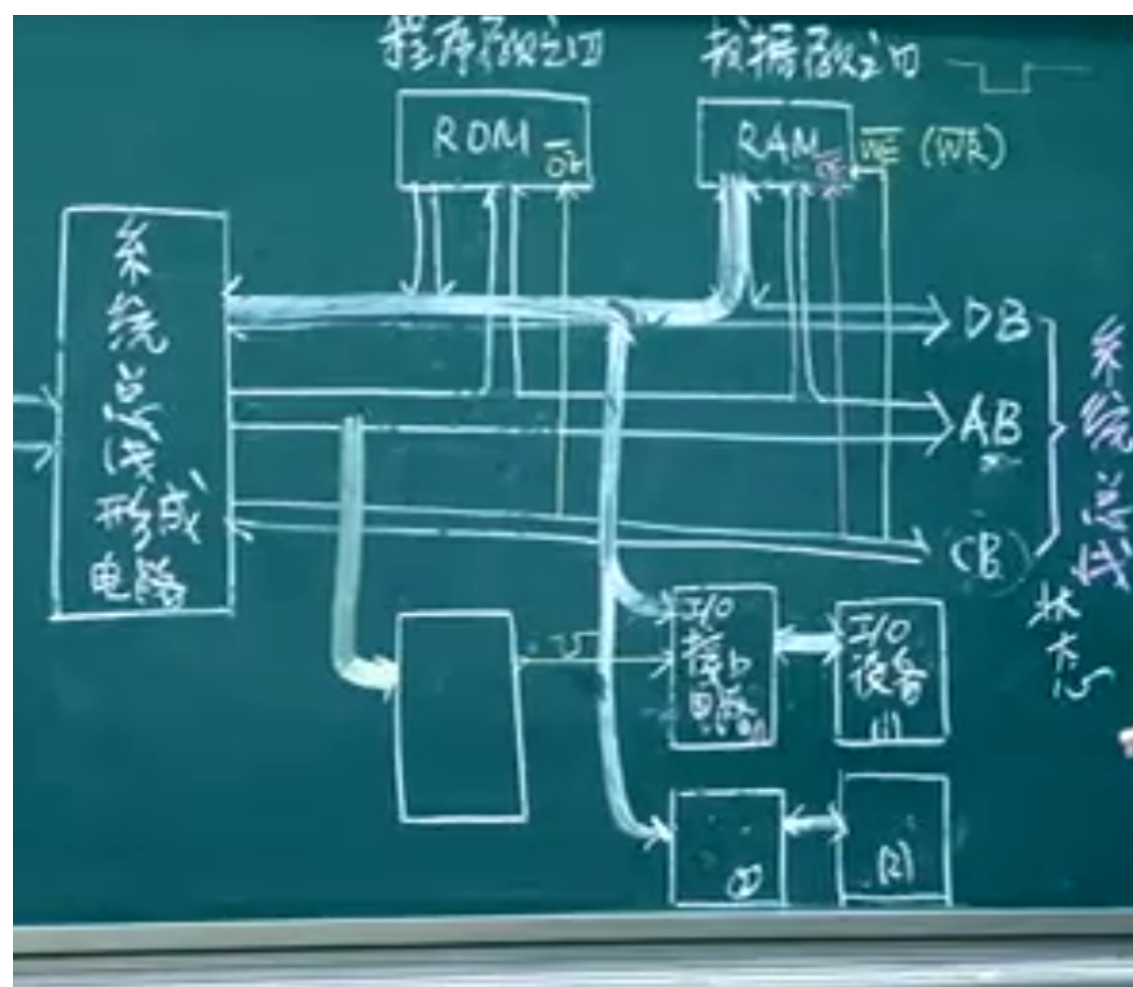 程序存储空间
数据存储空间
ROM
OE
RAM
OE
WE (WR)
系统总线形成电路
DB
AB
CB
系统总线
状态
I/O
接口
电路(1)
I/O
设备
(1)
(2)
(2)